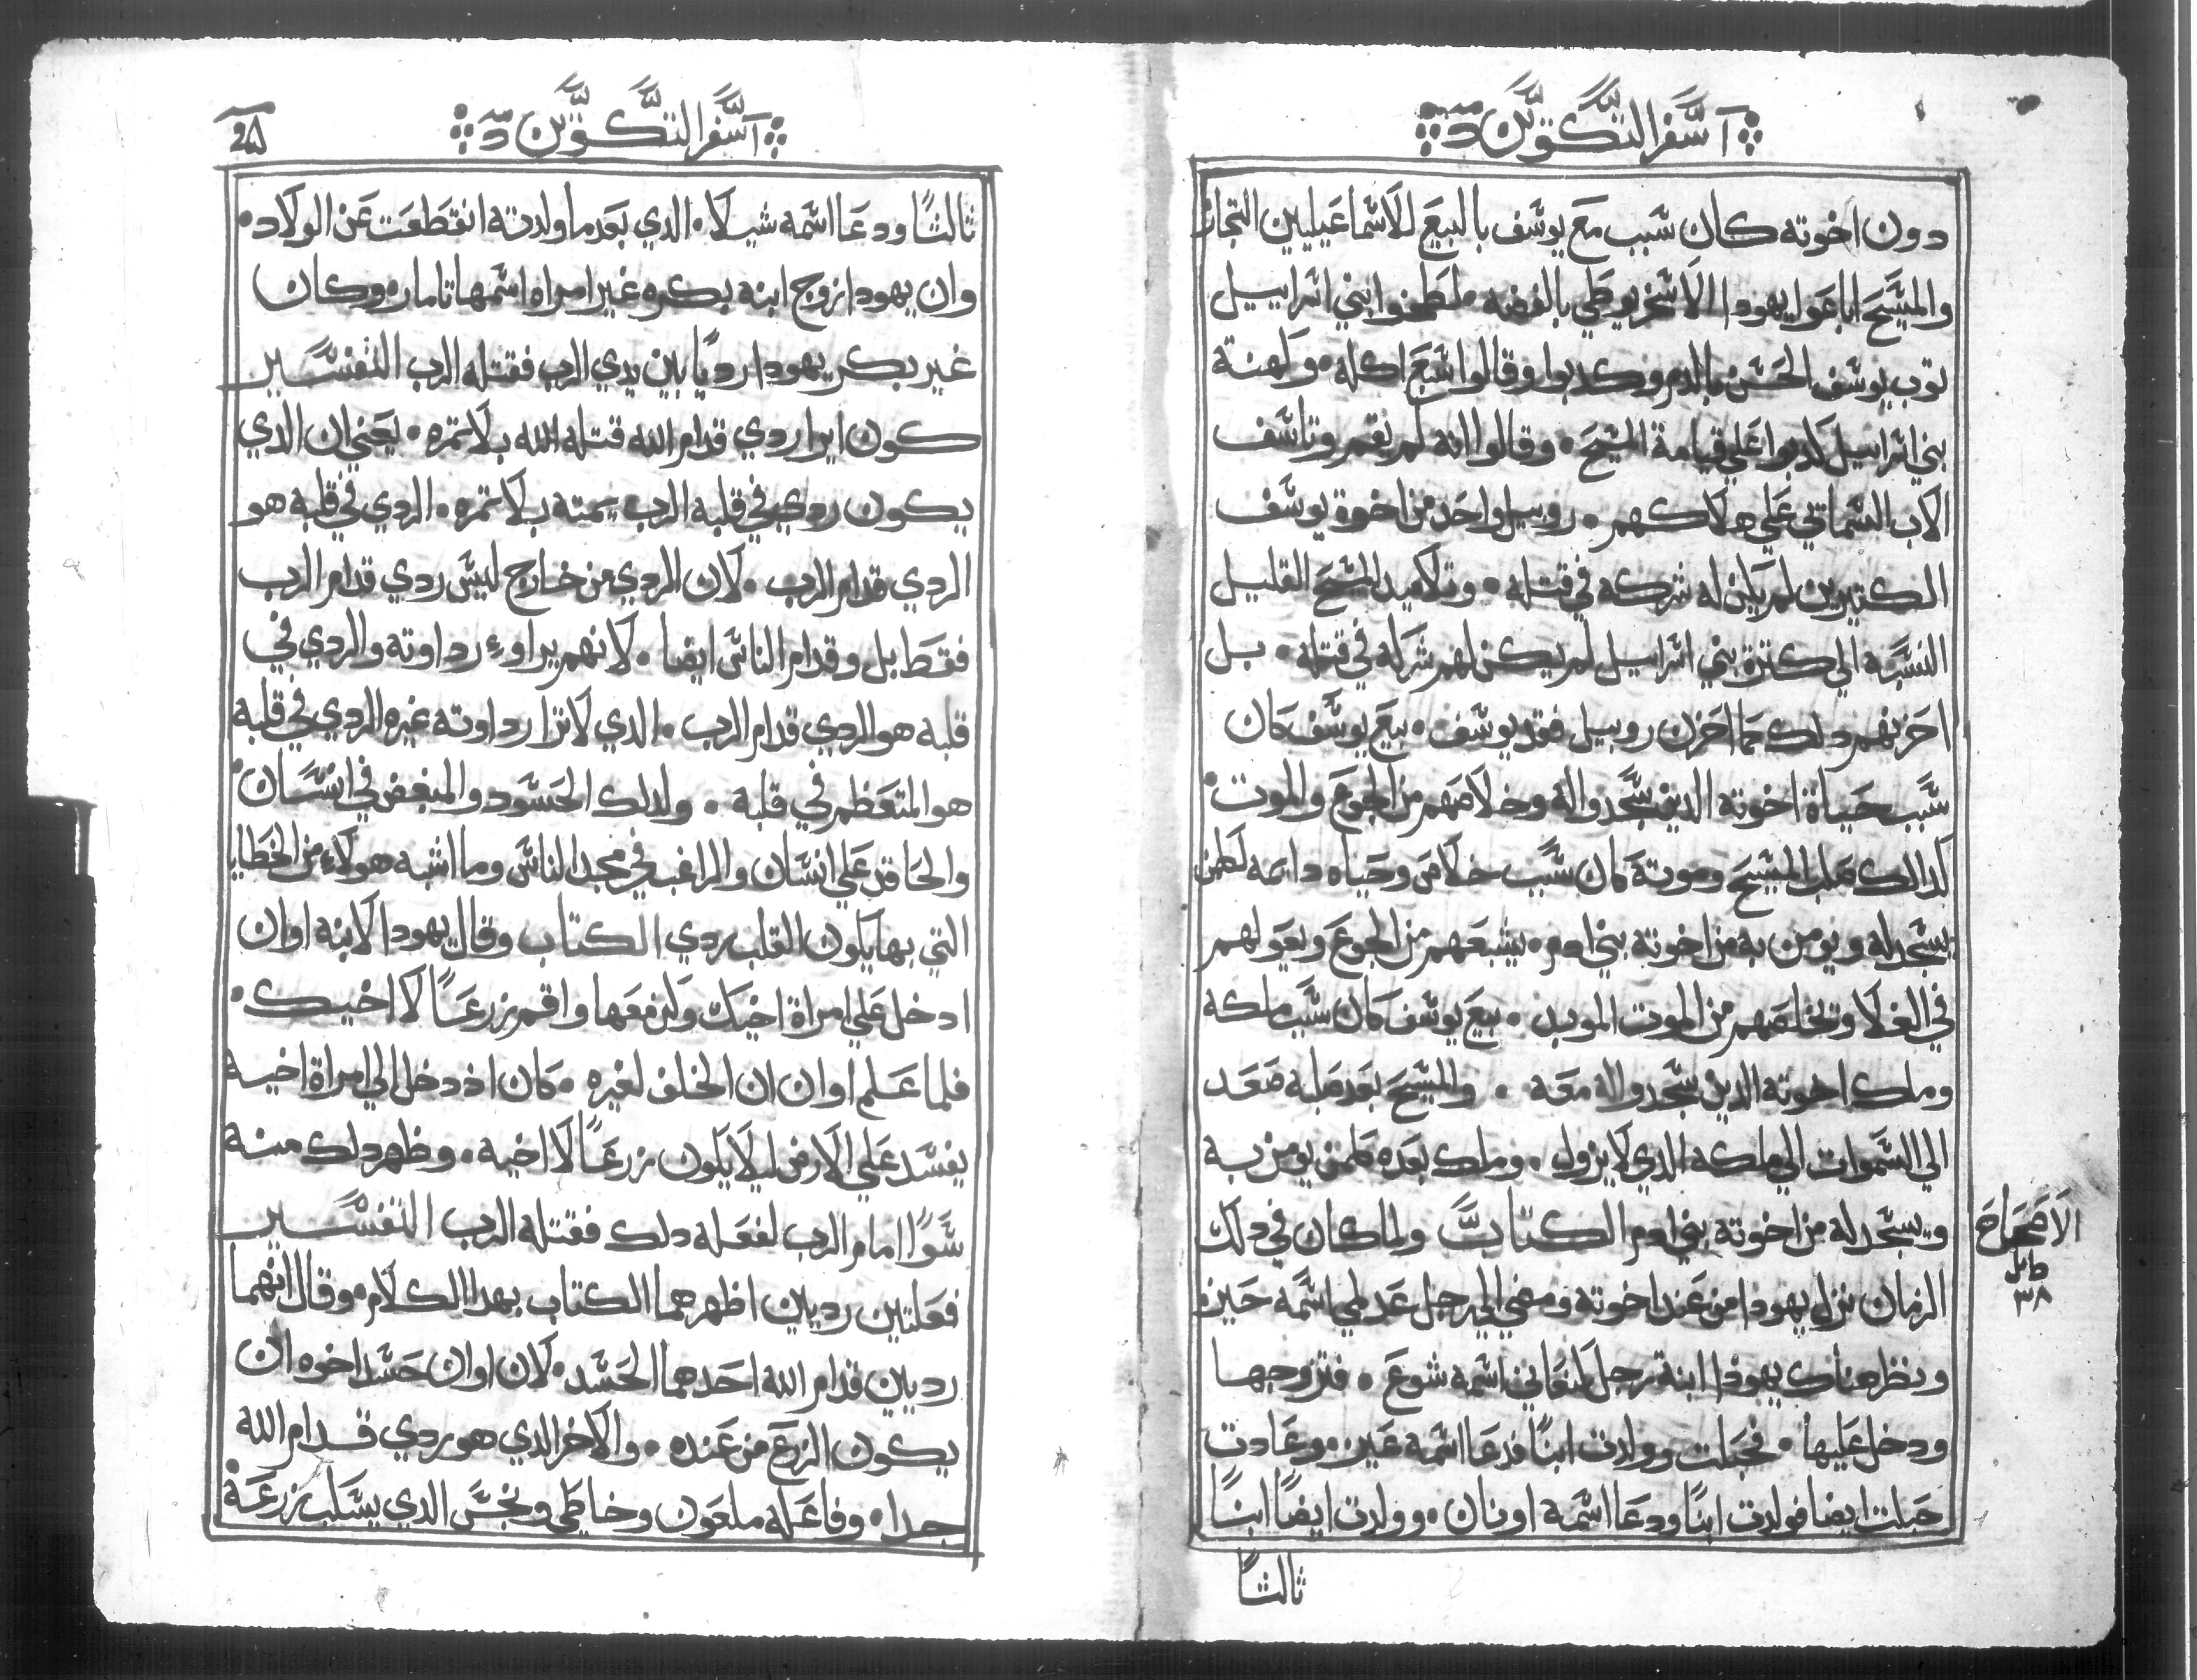 سفر التكوين
دون اخوته كان سبب مع يوسف بالبيع للاسماعيليين التجار
والمسيح اباعوا يهودا الاسخريوطي بالفضه • لطخوا بني اسراييل
توب يوسف الحسن بالدم وكدبوا وقالوا اسبع اكله • ولهنة
بني اسراييل كدبوا علي قيامة المسيح • وقالوا انه لم يقم وتاسف
الاب السماتي علي هلاكهم • روبيل واحد من اخوة يوسف
الكتيرين لم يكن له شركه في قتله • وتلاميد المسيح القليل
النسبه الي كترة بني اسراييل لم يكن لهم شركه في قتله • بل
احزنهم دلك كما احزن روبيل فقد يوسف • بيع يوسف كان
سبب حياة اخوته الدين سجدوا له وخلاصهم من الجوع والموت •
كدالك صلب المسيح وموته كان سبب خلاص وحياه دايمه لكلمن
يسجد له ويومن به من اخوته بني ادم • يشبعهم من الجوع ويعولهم
في الغلا وتخلصهم من الموت الموبد • بيع يوسف كان سبب ملكه
وملك اخوته الدين سجدوا له معه • والمسيح بعد صلبه صعد
الي السموات الي ملكه الدي لا يزول • وملك بعده كلمن يومن به
ويسجد له من اخوته بني ادم الكتاب ولما كان في دلك
الزمان نزل يهودا من عند اخوته ومضي الي رجل عدلمي اسمه حيره
ونظر هناك يهودا ابنة رجل كنعاني اسمه شوع • فتزوجها
ودخل عليها • فحبلت وولدت ابنًا فدعا اسمه عين • وعادت
حبلت ايضا فولدت ابنًا ودعا اسمه اونان • وولدت ايضًا ابنًا
ثالثًا
الاصحاح
٣٨
سفر التكوين
ثالثًا ودعا اسمه شيلا • الدي بعدما ولدته انقطعت عن الولاد •
وان يهودا زوج ابنه بكره غير امراه اسمها تامار • وكان
غير بكر يهودا رديًا بين يدي الرب فقتله الرب التفسير
كون اير ردي قدام الله قتله الله بلا تمره • يعني ان الدي
يكون ردي في قلبه الرب يمته بلا تمره • الردي في قلبه هو
الردي قدام الرب • لان الردي من خارج ليس ردي قدام الرب
فقط بل وقدام الناس ايضا • لانهم يراوء رداوته والردي في
قلبه هو الردي قدام الرب • الدي لا ترا رداوته غيره الردي في قلبه
هو المتعظم في قلبه • ولدلك الحسود والمبغض في انسان •
والحاقد علي انسان والراغب في مجد الناس وما اشبه هولاء من الخطايا
التي بها يكون القلب ردي الكتاب وقال يهودا لابنه اوان
ادخل علي امراة اخيك ولنرفعها واقم زرعًا لاخيك •
فلما علم اوان ان الخلف لغيره • كان اذ دخل الي امراة اخيه
يفسد علي الارض ليلا يكون زرعًا لاخيه • وظهر دلك منه
سوًا امام الرب لفعله دلك فقتله الرب التفسير
فعلتين رديين اظهرهما الكتاب بهدا الكلام • وقال انهما
رديين قدام الله احدهما الحسد • لان اوان حسد اخوه ان
يكون الزرع من عنده • والاخر الدي هو ردي قدام الله
جدا • وفاعله ملعون وخاطي ونجس الدي يسلب زرعه